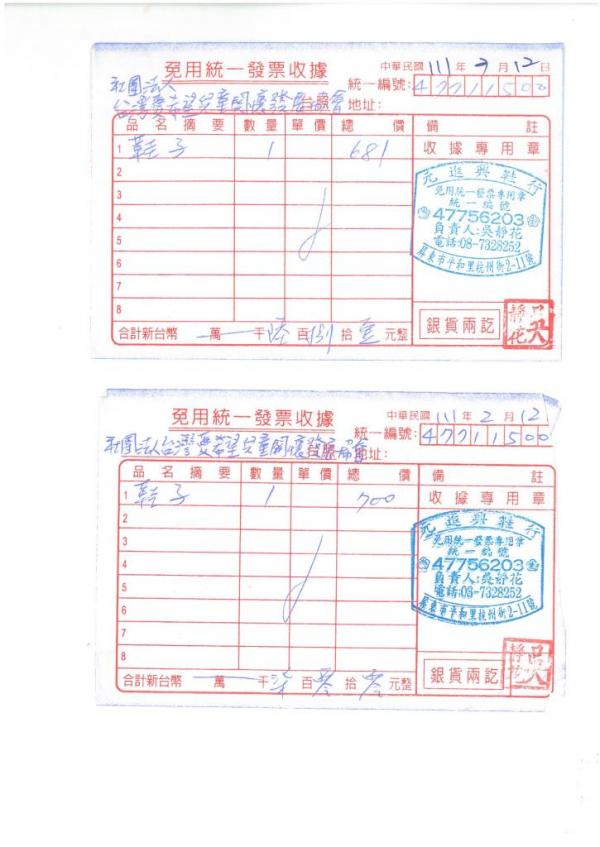 免用統一發票收據
中華民國 111 年 2 月 12 日
社團法人
台灣愛希望兒童關懷發展協會 台照
統一編號: 47711500
地址:
品名摘要 數量 單價 總價 備註
1 鞋子 1 681 收據專用章
2
3
4
5
6
7
8
元進興鞋行
免用統一發票專用章
統一編號
47756203
負責人:吳靜花
電話:08-7328252
屏東市平和里杭州街2-11號
銀貨兩訖
吳靜花
合計新台幣 萬 千 陸 百 捌 拾 壹 元整
免用統一發票收據
中華民國 111 年 2 月 12 日
統一編號: 47711500
社團法人台灣愛希望兒童關懷發展協會 台照 地址:
品名摘要 數量 單價 總價 備註
1 鞋子 1 700 收據專用章
2
3
4
5
6
7
8
元進興鞋行
免用統一發票專用章
統一編號
47756203
負責人:吳靜花
電話:08-7328252
屏東市平和里杭州街2-11號
銀貨兩訖
吳靜花
合計新台幣 萬 千 柒 百 零 拾 零 元整